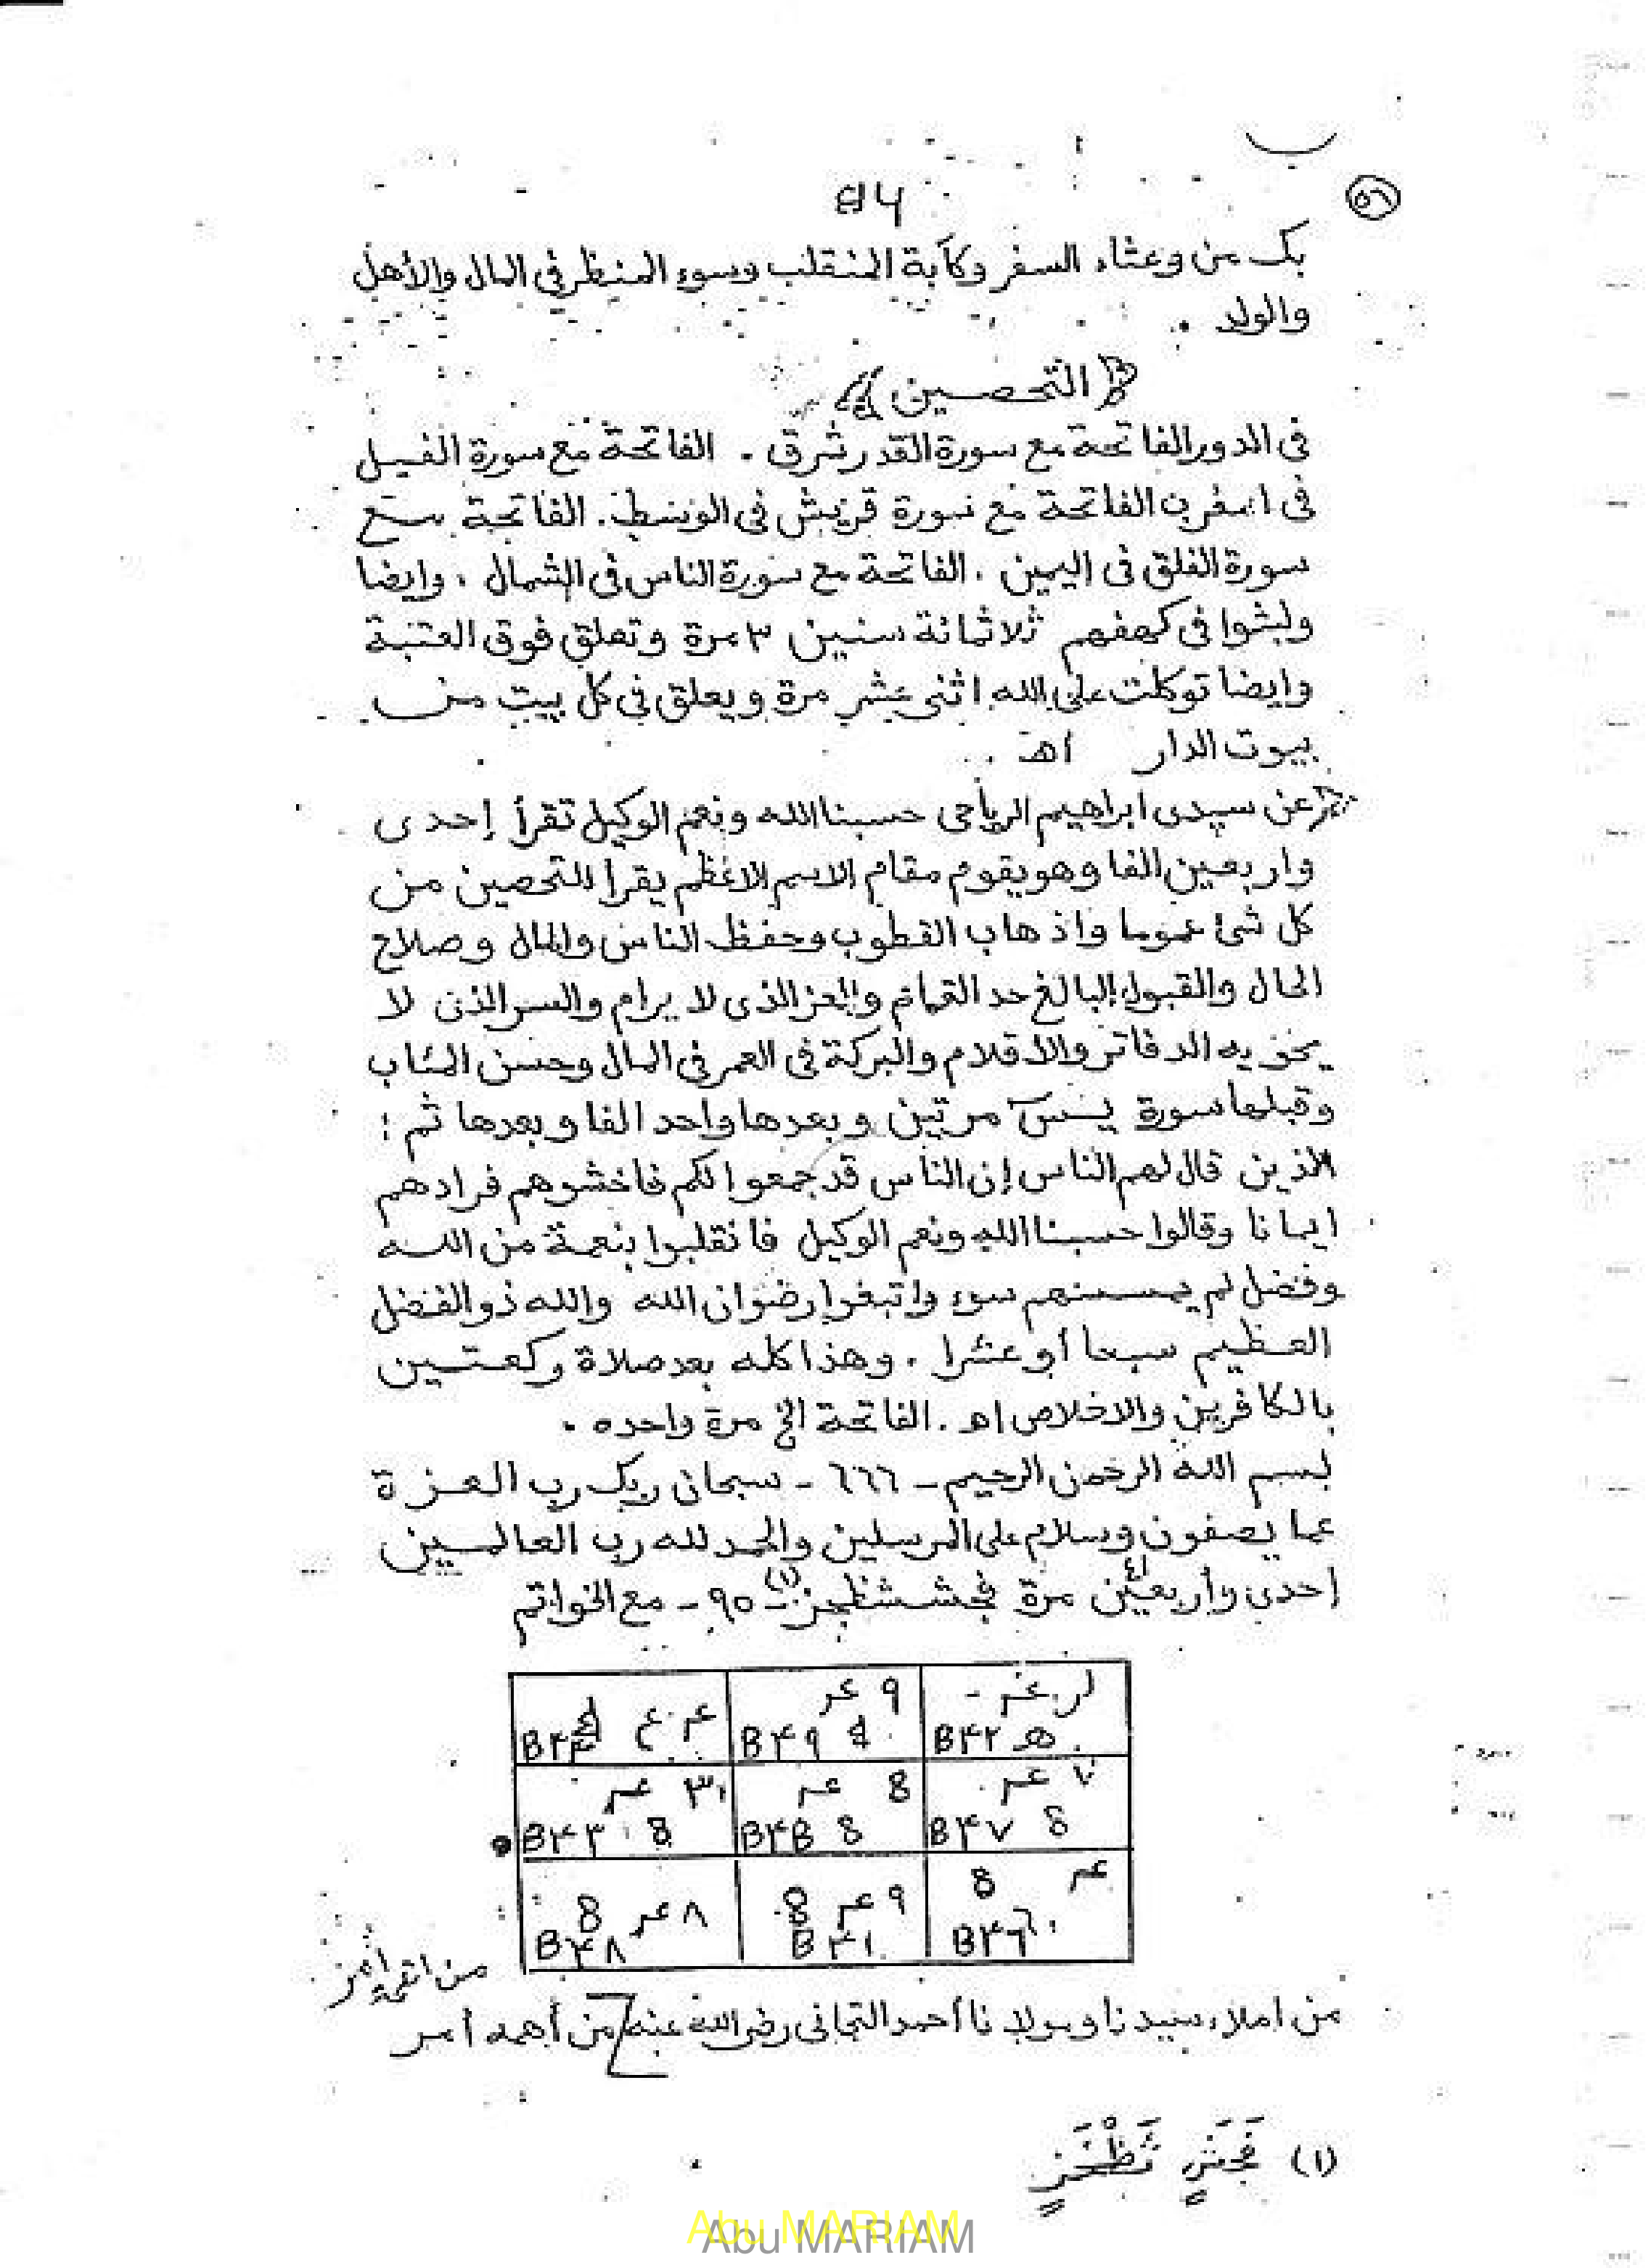 بك من وعثاء السفر وكآبة المنقلب وسوء المنظر فى المال والأهل
والولد .
التحصين
فى الدور الفاتحة مع سورة القدر شرق . الفاتحة مع سورة الفيل
فى الفاتحة مع سورة قريش فى الوسط . الفاتحة مع
سورة الفلق فى اليمين . الفاتحة مع سورة الناس فى الشمال . وايضا
ولبثوا فى كهفهم ثلاثمائة سنين ٣ مرة وتعلق فوق العتبة
وايضا توكلت على الله اثنى عشر مرة ويعلق فى كل بيت من
بيوت الدار اهـ
عن سيدى ابراهيم الرياحى حسبنا الله ونعم الوكيل تقرأ إحدى
واربعين الفا وهو يقوم مقام الاسم الاعظم يقرا للتحصين من
كل شئ عموما واذهاب القطوب وحفظ الناس والمال وصلاح
الحال والقبول البالغ حد التمام والعز الذى لا يرام والسر الذى لا
يحويه الدفاتر والاقلام والبركة فى العمر فى المال وحسن المئاب
وقبلها سورة يس مرتين وبعدها واحد الفا وبعدها ثم :
الذين قال لهم الناس إن الناس قد جمعوا لكم فاخشوهم فزادهم
ايمانا وقالوا حسبنا الله ونعم الوكيل فانقلبوا بنعمة من الله
وفضل لم يمسسهم سوء واتبعوا رضوان الله والله ذو الفضل
العظيم سبعا أو عشرا . وهذا كله بعد صلاة ركعتين
بالكافرين والاخلاص اهـ . الفاتحة الخ مرة واحده .
بسم الله الرحمن الرحيم - ٦٦٦ - سبحان ربك رب العزة
عما يصفون وسلام على المرسلين والحمد لله رب العالمين
إحدى وأربعين ٤١ مرة فجشثظخز (١) - ٩٥ - مع الخواتم
من املاء سيدنا ومولانا أحمد التجانى رضى الله عنه من أهمه أمر
(١) فَجَشٍ ثَظْخَزٍ
Abu MARIAM
Abu MARIAM